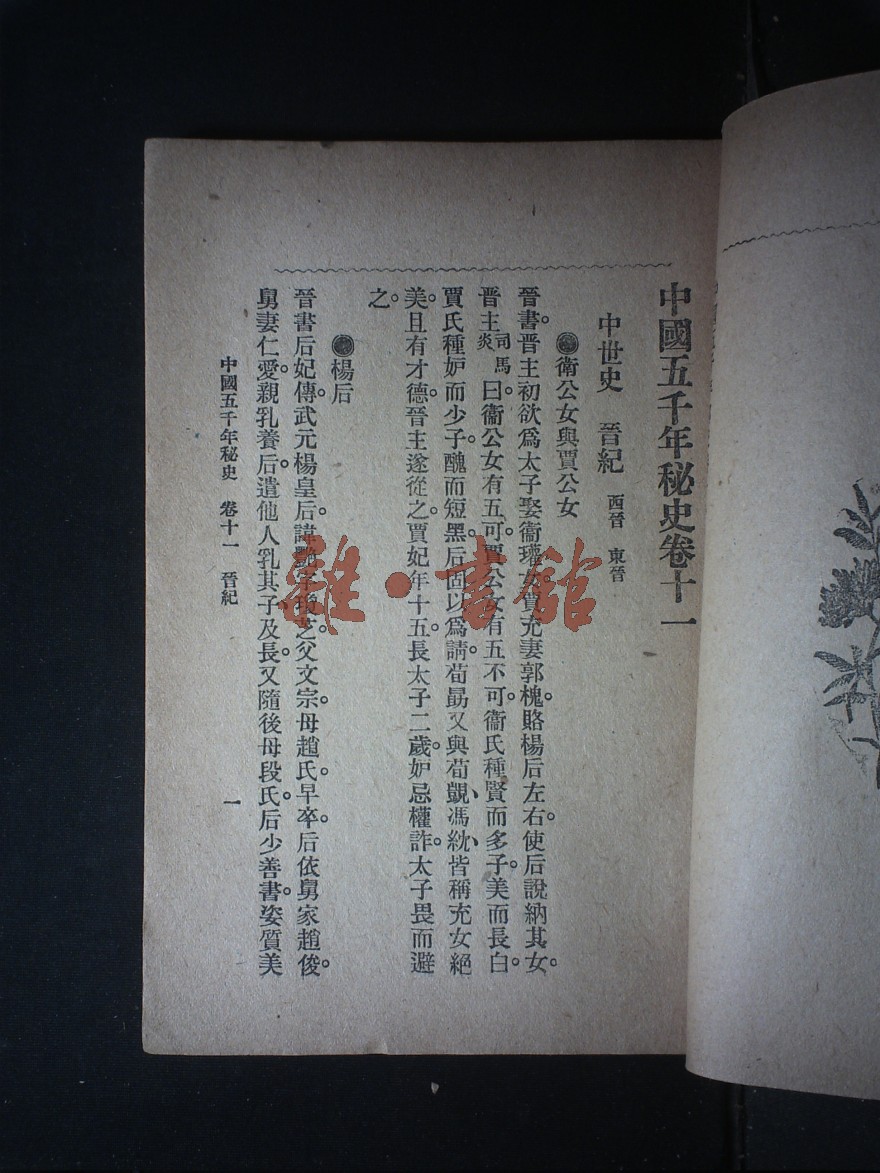 中國五千年秘史卷十一
中世史　晉紀　西晉　東晉
◉衛公女與賈公女
晉書。晋主初欲爲太子娶衞瓘女。賈充妻郭槐。賂楊后左右。使后說納其女。
晋主司馬炎。曰。衞公女有五可。賈公女有五不可。衞氏種賢而多子。美而長白。
賈氏種妒而少子。醜而短黑。后固以爲請。荀勗又與荀顗、馮紞、皆稱充女絕
美。且有才德。晉主遂從之。賈妃年十五。長太子二歲。妒忌權詐。太子畏而避
之。
◉楊后
晉書后妃傳。武元楊皇后。諱艷。字瓊芝。父文宗。母趙氏。早卒。后依舅家趙俊。
舅妻仁愛。親乳養后。遣他人乳其子。及長。又隨後母段氏。后少善書。姿質美
中國五千年秘史　卷十一　晉紀
一
雜·書館